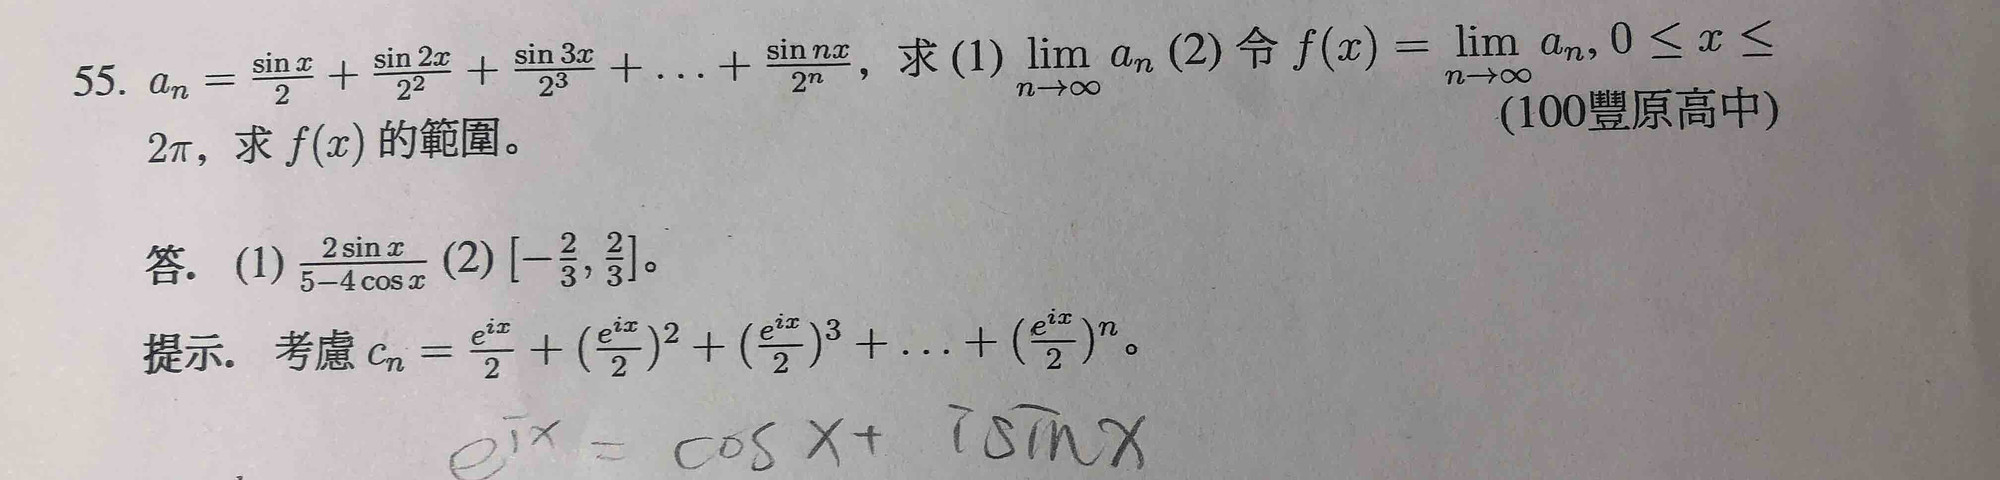 55. aₙ = sin x/2 + sin 2x/2² + sin 3x/2³ + ... + sin nx/2ⁿ，求 (1) lim n→∞ aₙ (2) 令 f(x) = lim n→∞ aₙ, 0 ≤ x ≤
2π，求 f(x) 的範圍。 (100豐原高中)
答. (1) 2 sin x/5−4 cos x (2) [−2/3, 2/3]。
提示. 考慮 cₙ = eⁱˣ/2 + (eⁱˣ/2)² + (eⁱˣ/2)³ + ... + (eⁱˣ/2)ⁿ。
eⁱˣ = cos x + i sin x